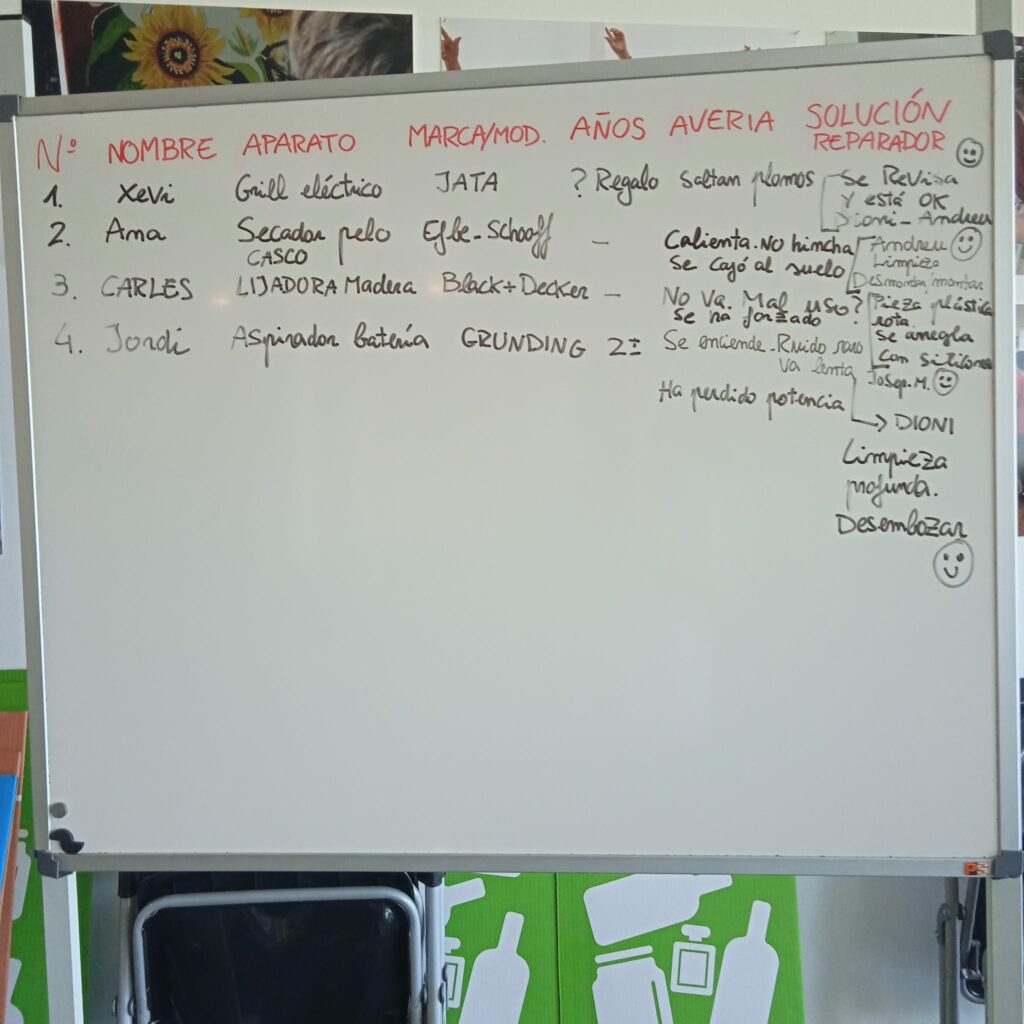 Nº NOMBRE APARATO MARCA/MOD. AÑOS AVERIA SOLUCIÓN
REPARADOR
1. XeVi Grill eléctrico JATA ? Regalo Saltan plomos Se ReVisa
Y está OK
Dioni - Andreu
2. Ama Secador pelo Efbe-Schooff - Calienta. NO hincha Andreu
CASCO Se cayó al suelo Limpieza
Desmontar/montar
3. CARLES LIJADORA Madera Black+Decker - No Va. Mal uso? Pieza plástica
Se ha forzado rota.
Se arregla
con silicona
Josep. M.
4. Jordi Aspirador batería GRUNDING 2± Se enciende - Ruido raro
Va lenta
Ha perdido potencia → DIONI
Limpieza
profunda.
Desembozar